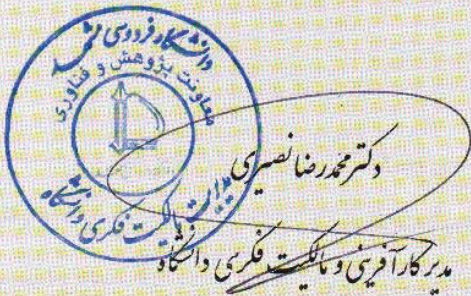 دانشگاه فردوسی مشهد
معاونت پژوهش و فناوری
مدیریت مالکیت فکری دانشگاه
دکتر محمدرضا نصیری
مدیر کارآفرینی و مالکیت فکری دانشگاه